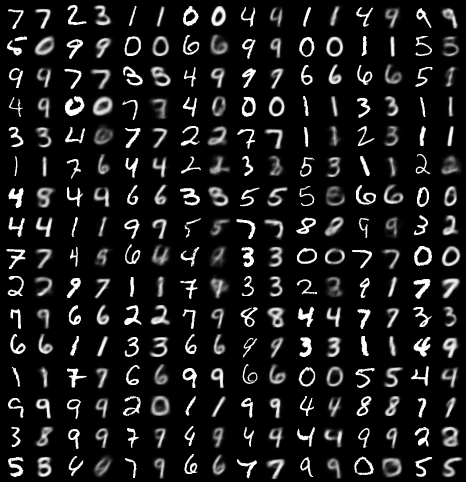 7 7 2 3 1 1 0 0 4 4 1 1 4 9 9 9
5 0 9 9 0 0 6 6 9 9 0 0 1 1 5 5
9 9 7 7 3 3 4 9 9 9 6 6 6 6 5 1
4 9 0 0 7 7 4 0 0 0 1 1 3 3 1 1
3 3 4 0 7 7 2 2 7 7 1 1 2 3 1 1
1 1 7 6 4 4 2 2 3 3 5 3 1 1 2 2
4 8 4 9 6 6 3 3 5 5 5 8 6 6 0 0
4 4 1 1 9 9 5 5 7 7 8 8 9 9 3 2
7 7 4 5 6 4 4 9 3 3 0 0 7 7 0 0
2 2 9 7 1 1 7 9 3 3 2 2 9 1 7 7
7 9 6 6 2 2 7 9 8 8 4 4 7 7 3 3
6 6 1 1 3 3 6 6 9 9 3 3 1 1 4 9
1 1 7 7 6 6 9 9 6 6 0 0 5 5 4 4
9 9 9 9 2 0 1 1 9 9 4 4 8 8 7 7
3 8 9 9 7 7 4 9 4 4 4 4 9 9 2 2
5 5 4 4 7 9 6 6 7 7 9 9 0 0 5 5